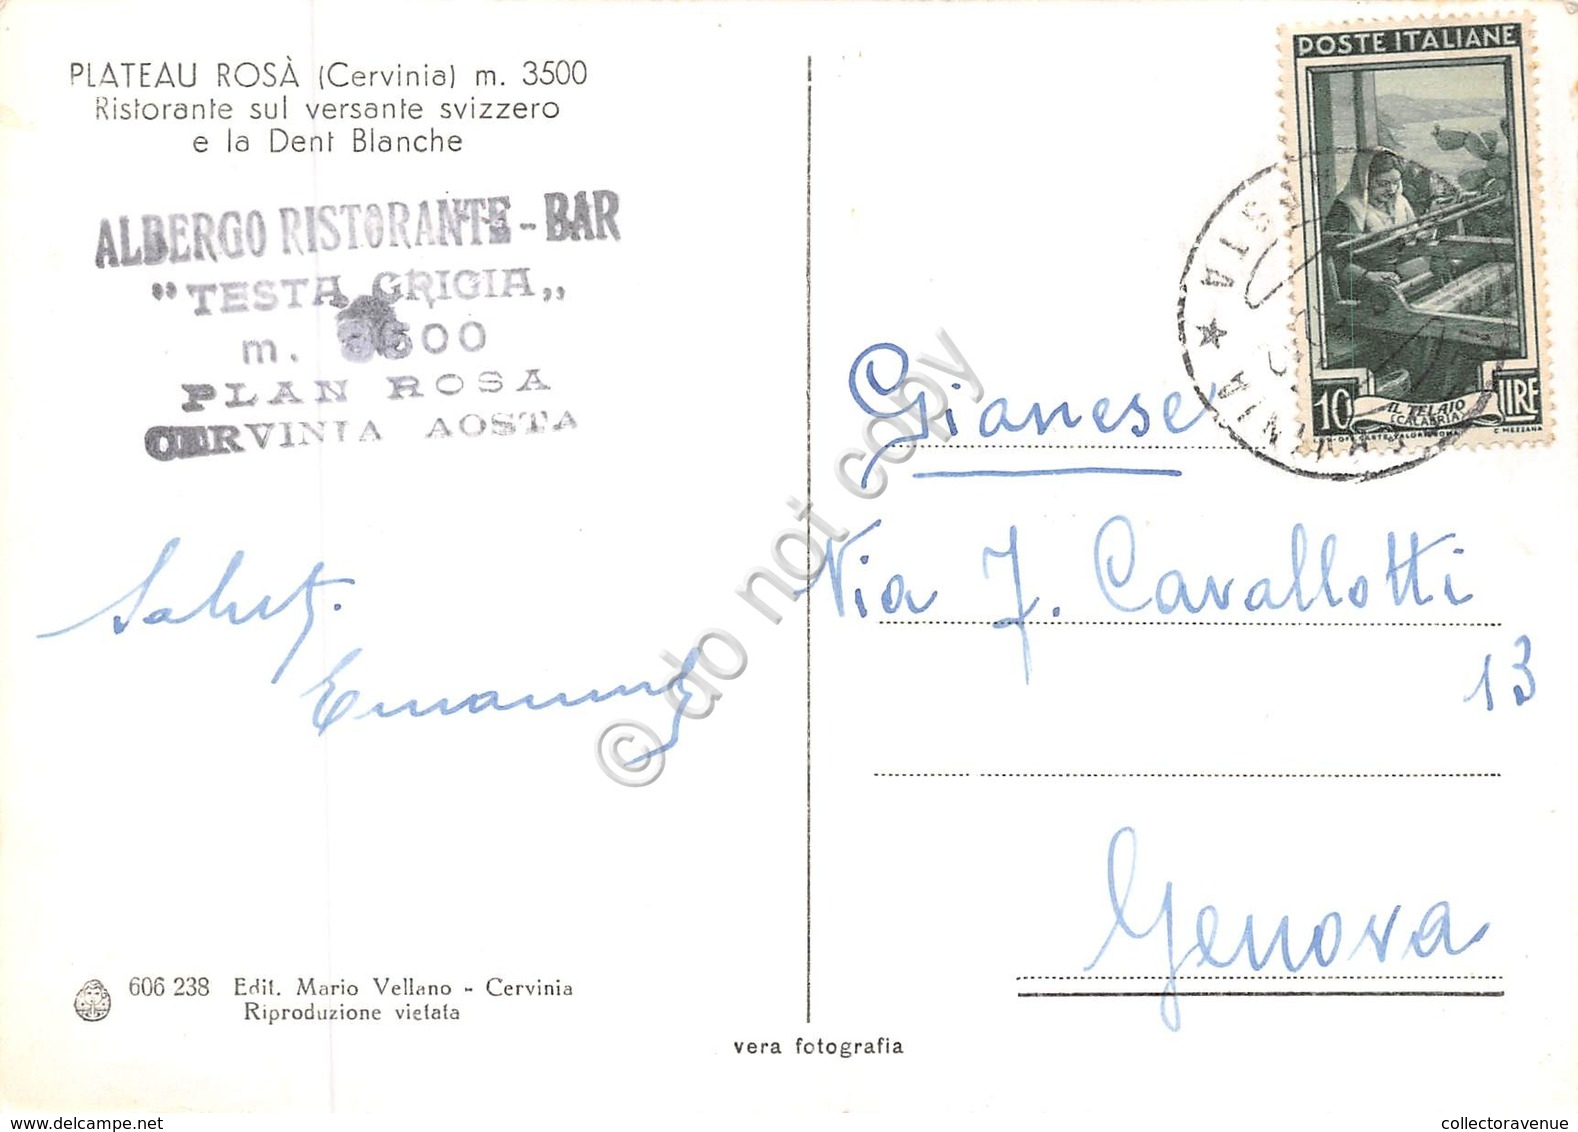 PLATEAU ROSÀ (Cervinia) m. 3500
Ristorante sul versante svizzero
e la Dent Blanche
ALBERGO RISTORANTE - BAR
"TESTA GRIGIA„
m. 3500
PLAN ROSA
CERVINIA AOSTA
Saluti.
606 238 Edit. Mario Vellano - Cervinia
Riproduzione vietata
vera fotografia
POSTE ITALIANE
10 LIRE
IL TELAIO
(CALABRIA)
C. MEZZANA
Gianese
Via F. Cavallotti
13
Genova
© do not copy
www.delcampe.net
collectoravenue